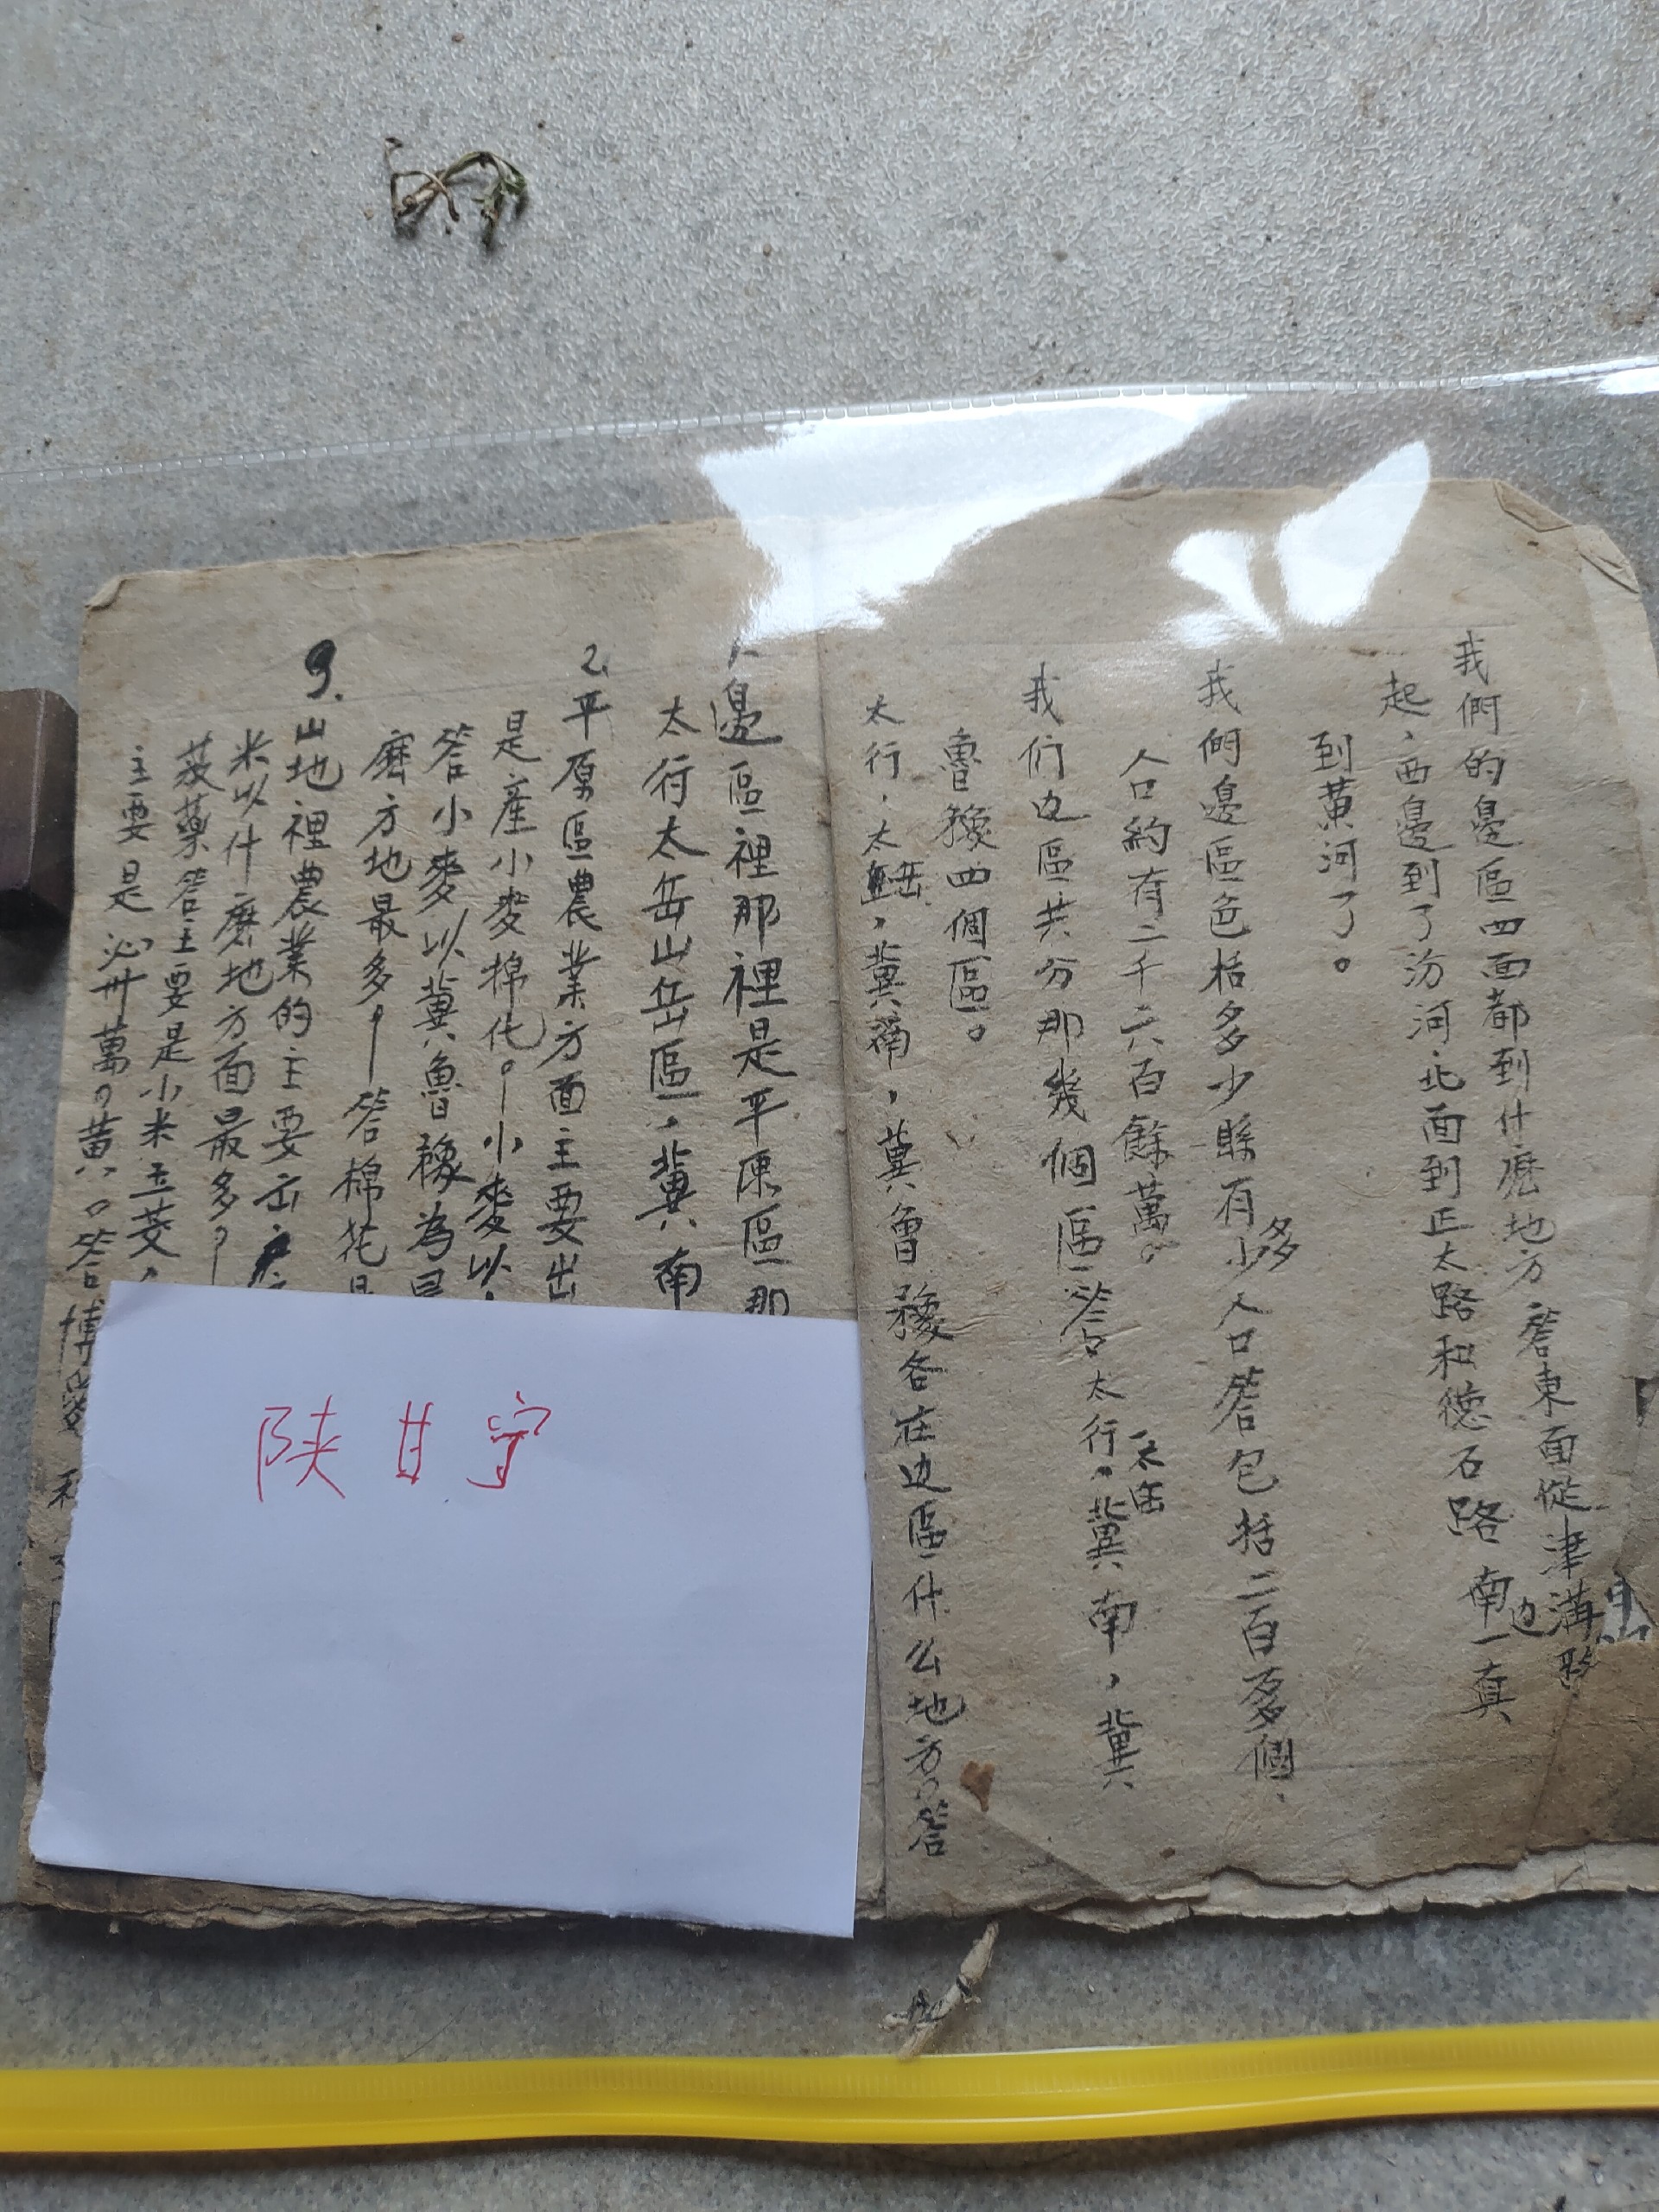 我們的邊區四面都到什麽地方答東面從津溝
起，西邊到了汾河北面到正太路和德石路南边一直
到黄河了。
我們邊區包括多少縣有多少人口答包括二百多個
人口約有二千六百餘萬。
我们边區共分那幾個區答太行，太岳冀南，冀
魯豫四個區。
太行，太岳，冀南，冀魯豫各在边區什么地方答
邊區裡那裡是平原區那
太行太岳山岳區，冀南
2.平原區農業方面主要出
是産小麥棉花。小麥以
答小麥以冀魯豫為
麽方地最多 答棉花
3.山地裡農業的主要
米以什麽地方面最多
藥答主要是小米玉茭
主要是 答博愛
陕甘宁